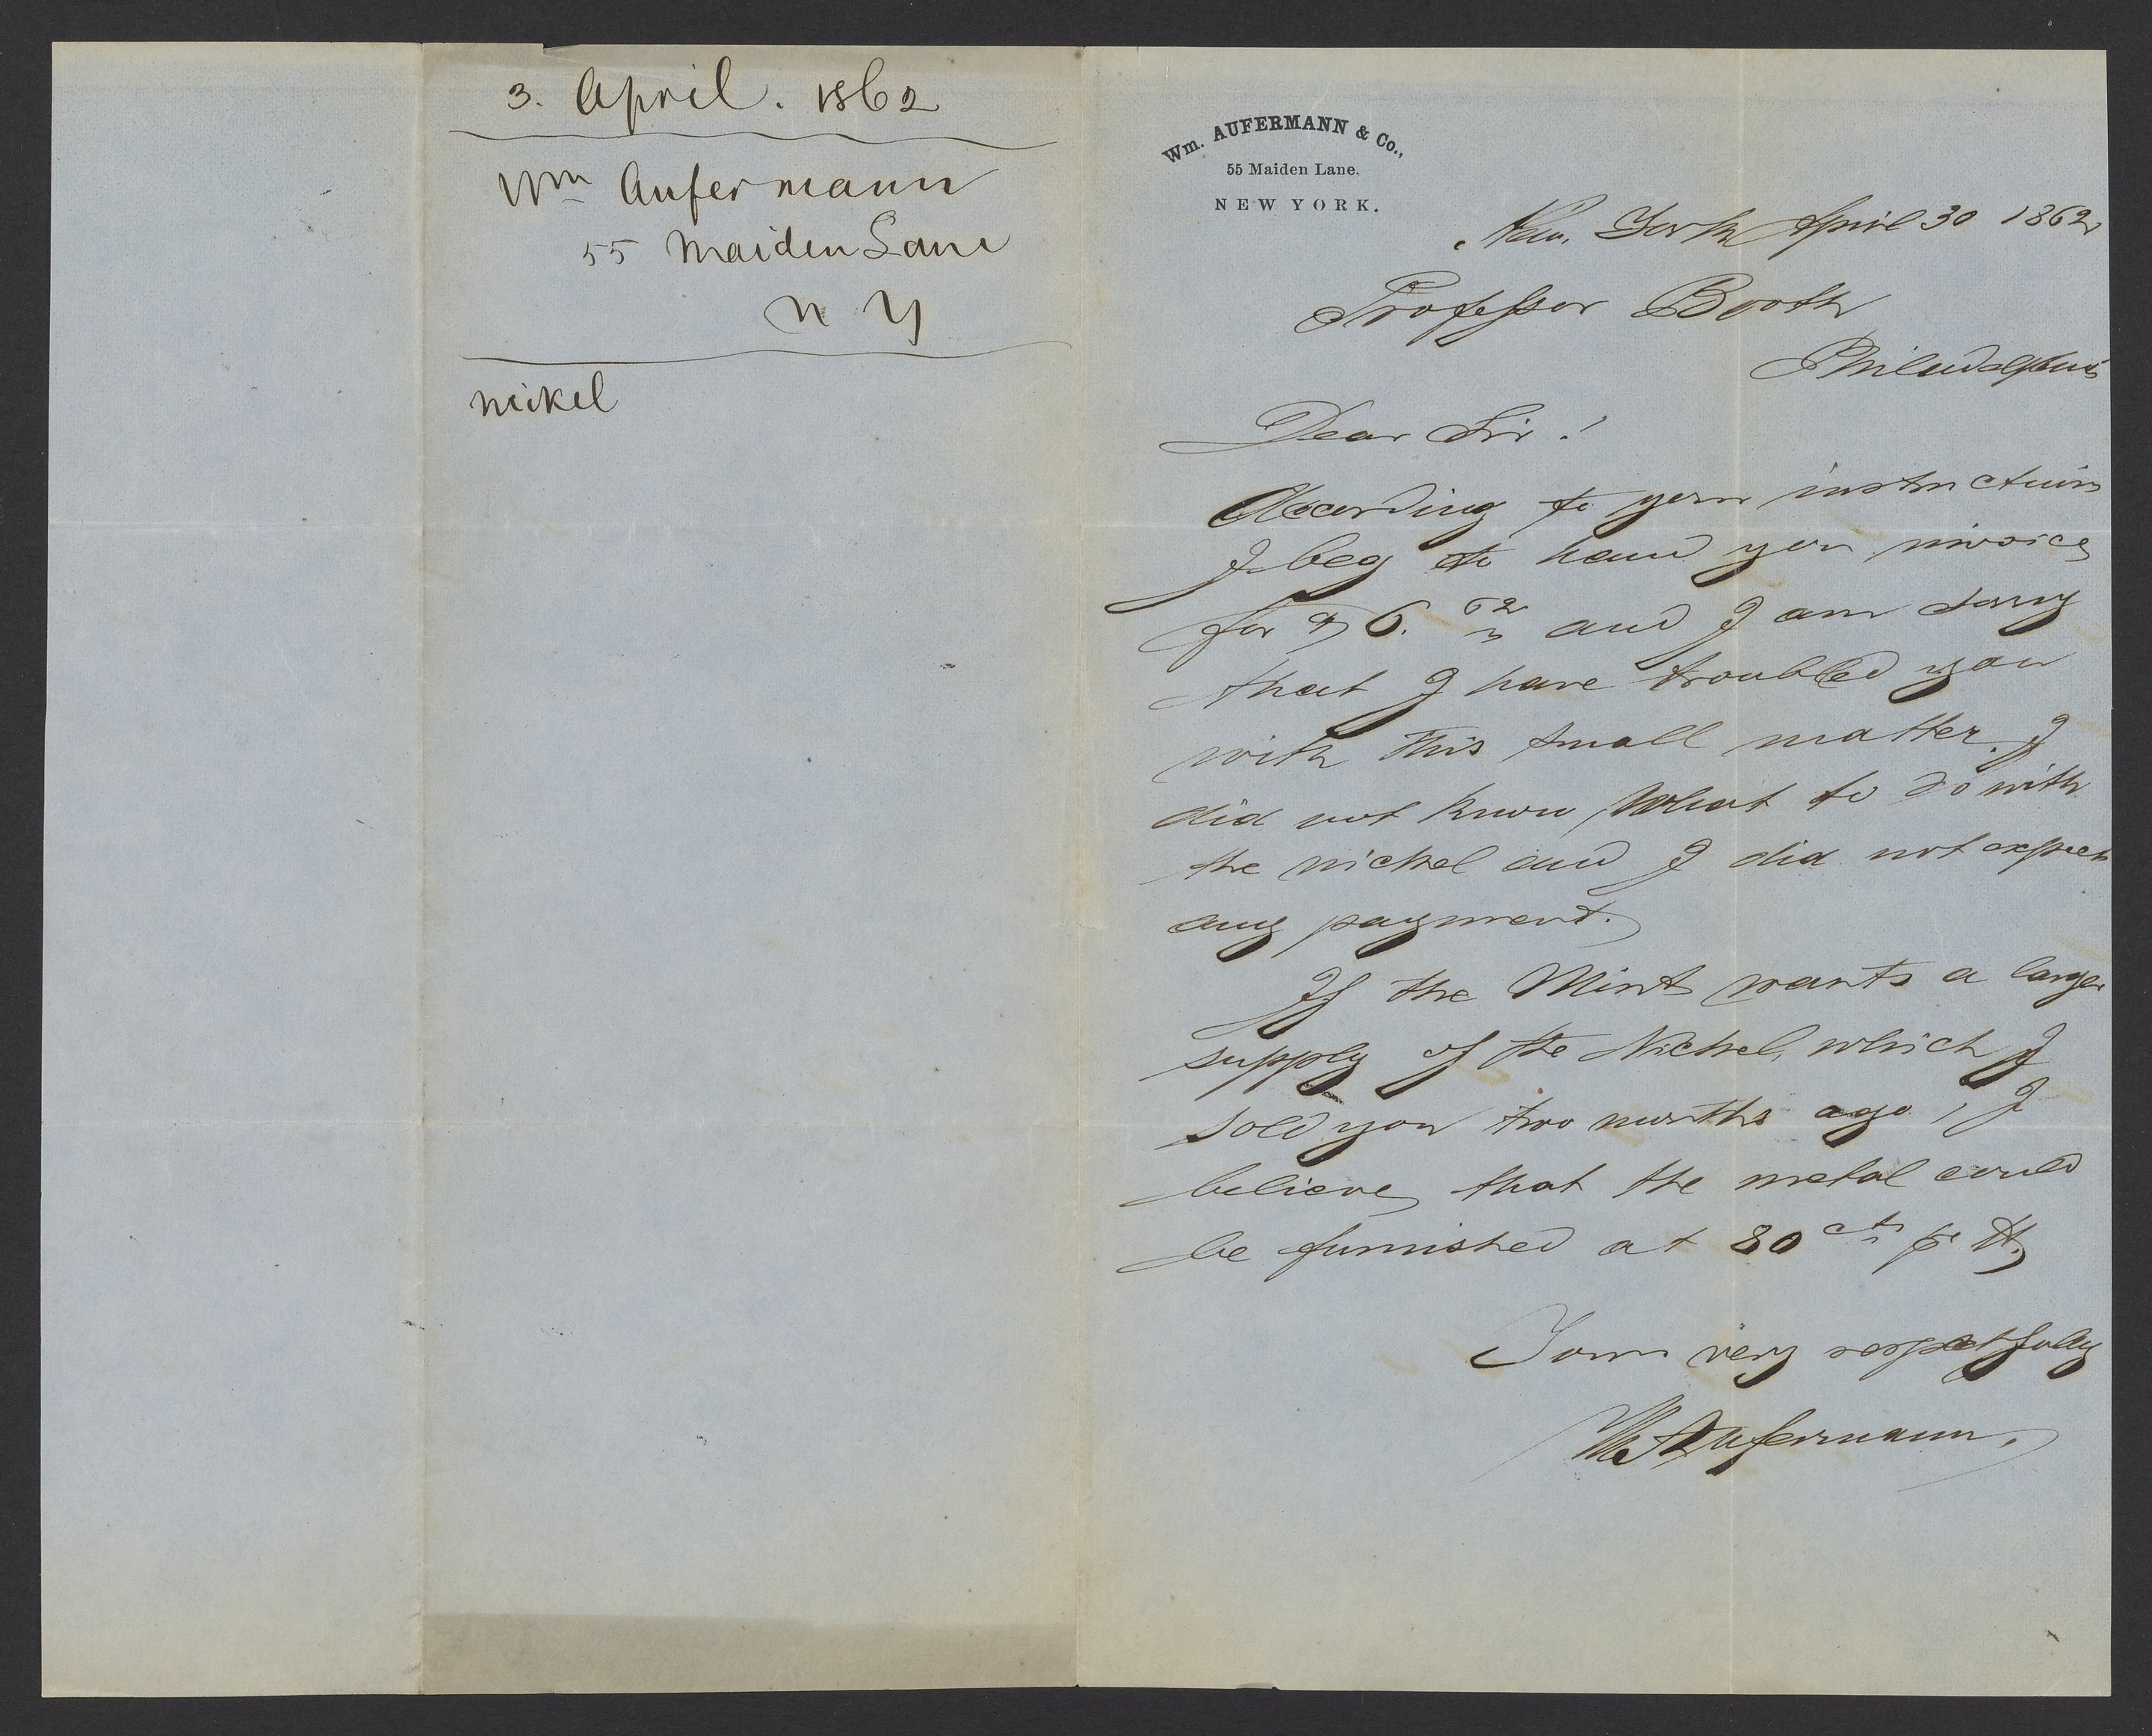 3. April. 1862
Wm Aufermann
55 Maiden Lane
N Y
nickel
Wm. AUFERMANN & Co.,
55 Maiden Lane.
NEW YORK.
New York April 30 1862
Professor Booth
Philadelphia
Dear Sir!
According to your instructions
I beg to hand you invoice
for $6. 62 and I am sorry
that I have troubled you
with this small matter. I
did not know what to do with
the nickel and I did not expect
any payment.
If the Mint wants a larger
supply of the Nickel, which I
sold you two months ago, I
believe that the metal could
be furnished at 80 cts pr lb
Yours very respectfully
Wm Aufermann.